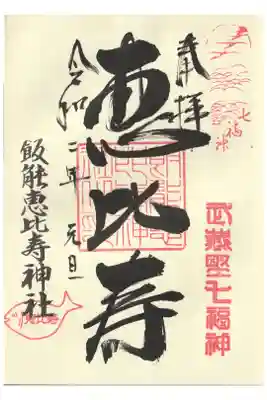 奉拝
七福神
武蔵野七福神
恵比寿
令和二年 元旦
飯能恵比寿神社